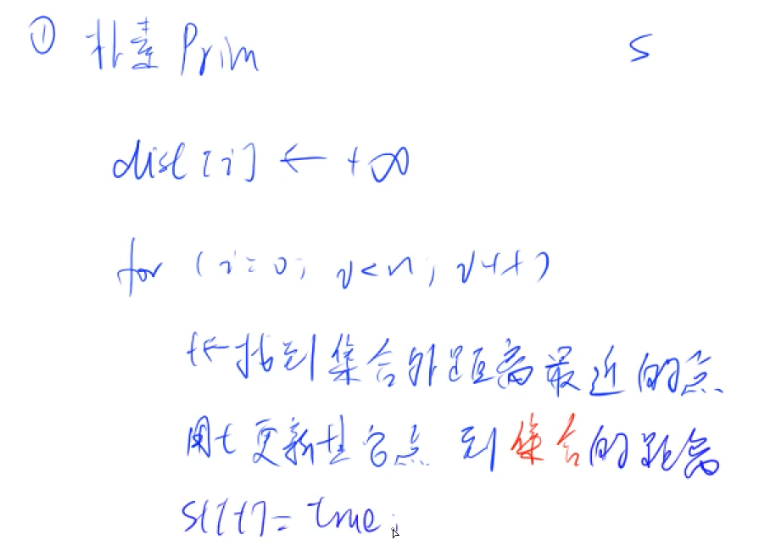 ① 朴素 Prim S
dist[i] ← +∞
for (i=0; i<n; i++)
t← 找到集合外距离最近的点
用t更新其它点 到集合的距离
st[t]=true;